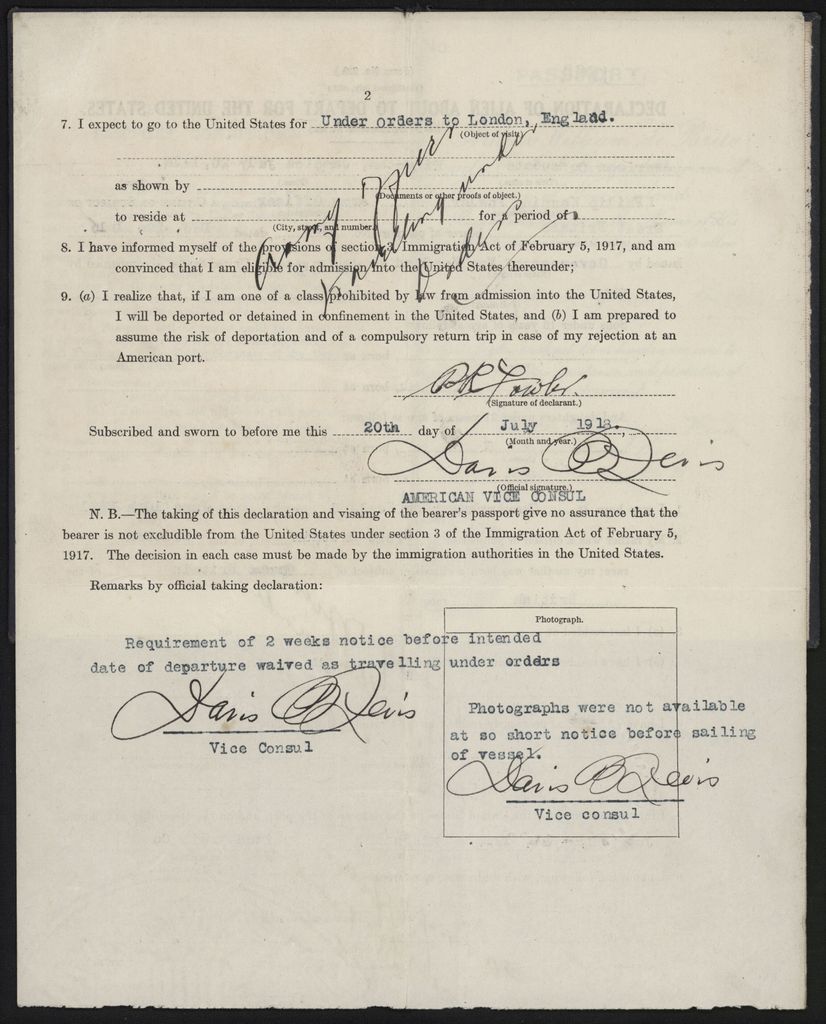 2
7. I expect to go to the United States for Under orders to London, England.
(Object of visit)
as shown by
(Documents or other proofs of object.)
to reside at for a period of
(City, street, and number.)
Army Officer
travelling under
Orders
8. I have informed myself of the provisions of section 3, Immigration Act of February 5, 1917, and am
convinced that I am eligible for admission into the United States thereunder;
9. (a) I realize that, if I am one of a class prohibited by law from admission into the United States,
I will be deported or detained in confinement in the United States, and (b) I am prepared to
assume the risk of deportation and of a compulsory return trip in case of my rejection at an
American port.
Fowler
(Signature of declarant.)
Subscribed and sworn to before me this 20th day of July 1918.
(Month and year.)
Davis B Levis
(Official signature.)
AMERICAN VICE CONSUL
N. B.—The taking of this declaration and visaing of the bearer's passport give no assurance that the
bearer is not excludible from the United States under section 3 of the Immigration Act of February 5,
1917. The decision in each case must be made by the immigration authorities in the United States.
Remarks by official taking declaration:
Requirement of 2 weeks notice before intended
date of departure waived as travelling under orders
Davis B Levis
Vice Consul
Photograph.
Photographs were not available
at so short notice before sailing
of vessel.
Davis B Levis
Vice consul